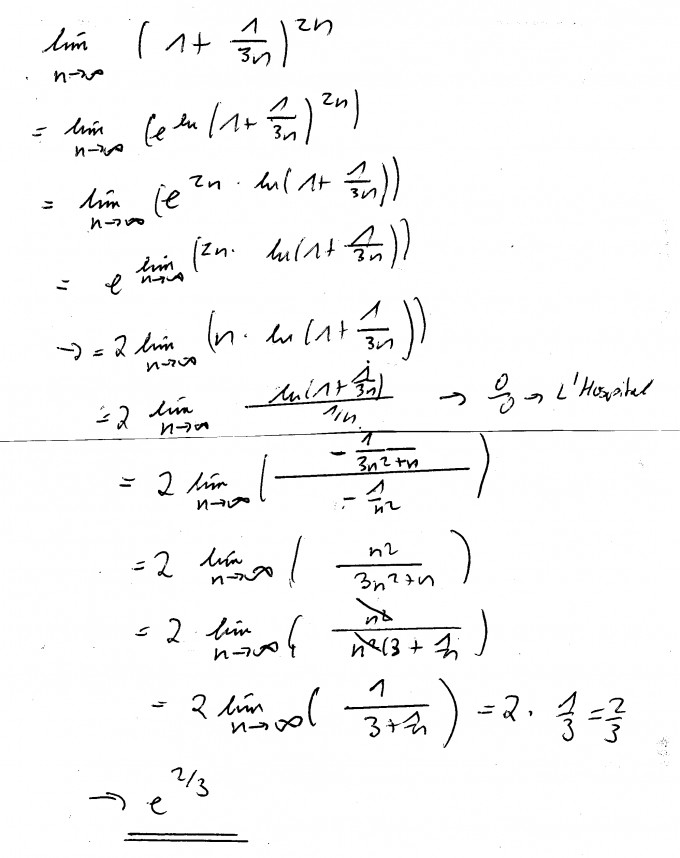 lim n→∞ (1 + 1/(3n))^(2n)
= lim n→∞ (e^(ln(1 + 1/(3n))^(2n)))
= lim n→∞ (e^(2n · ln(1 + 1/(3n))))
= e^(lim n→∞ (2n · ln(1 + 1/(3n))))
→ = 2 lim n→∞ (n · ln(1 + 1/(3n)))
= 2 lim n→∞ ln(1 + 1/(3n)) / (1/n) → 0/0 → L'Hospital
= 2 lim n→∞ ((-1/(3n²+n)) / (-1/n²))
= 2 lim n→∞ (n²/(3n²+n))
= 2 lim n→∞ (n²/(n²(3 + 1/n)))
= 2 lim n→∞ (1/(3 + 1/n)) = 2 · 1/3 = 2/3
→ e^(2/3)